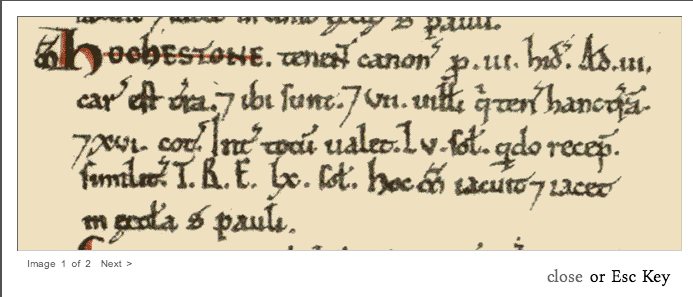 in ecclia S pauli.
m̃ hOChESTONE. tenenť canonˀ p. .iii. hiđ. Ad .iii.
carˀ est ťra. 7 ibi sunt. 7 vii. uilli q̇ tenˀ hanc ťrã.
7 xvi. cot. Intˀ totũ ualet. l v. sol. qdo recep.
similit. T. R. E. lx. sol. hoc m̃ iacuit 7 iacet
in eccła S pauli.
Image 1 of 2 Next >
close or Esc Key